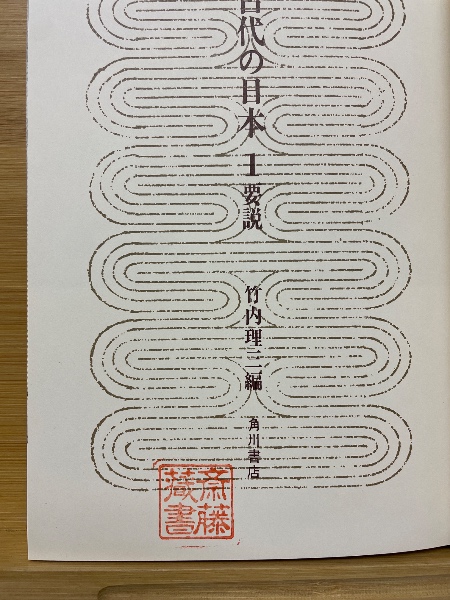 古代の日本 1 要説
竹内理三編
角川書店
斎藤
蔵書